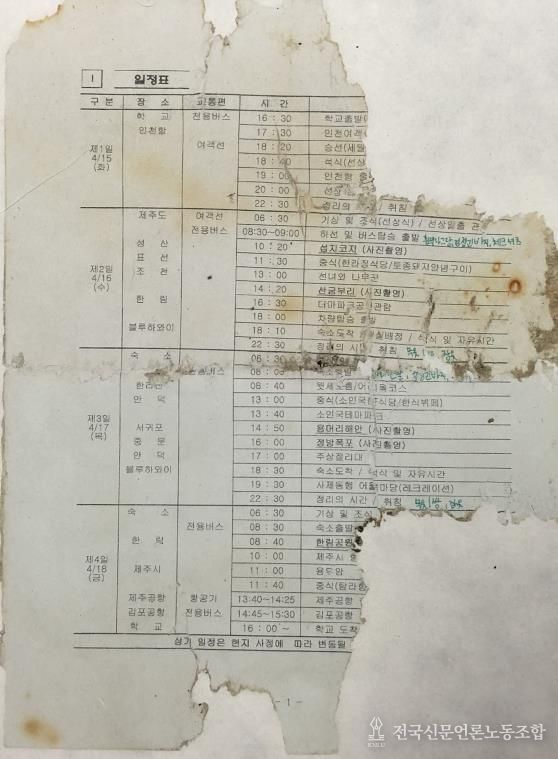 I 일정표
구 분 장 소 교통편 시 간
제1일 4/15 (화) 학 교 전용버스 16 : 30 학교출발
인천항 17 : 30 인천여객
여객선 18 : 20 승선(세월
18 : 40 석식(선상
19 : 00 인천항 출
20 : 00 선상
22 : 30 정리의 / 취침
제2일 4/16 (수) 제주도 여객선 06 : 30 기상 및 조식(선상식) / 선상일출 관
전용버스 08:30~09:00 하선 및 버스탑승 출발
성 산 10 : 20 섭지코지 (사진촬영)
표 선 11 : 30 중식(한라정식당/토종돼지양념구이)
조 천 13 : 00 선녀와 나무꾼
14 : 20 산굼부리 (사진촬영)
한 림 16 : 30 더마파크공연관람
18 : 00 차량탑승 출발
블루하와이 18 : 10 숙소도착 / 실배정 / 석식 및 자유시간
22 : 30 정리의 시간 / 취침
제3일 4/17 (목) 숙 소 06 : 30
08 : 00 숙소출발
한라산 08 : 40 윗세오름/어리목코스
안 덕 13 : 00 중식(소인국 식당/한식뷔페)
13 : 40 소인국테마파크
서귀포 14 : 50 용머리해안 (사진촬영)
중 문 16 : 00 정방폭포 (사진촬영)
안 덕 17 : 00 주상절리대
블루하와이 18 : 30 숙소도착 / 석식 및 자유시간
19 : 30 사제동행 어울 마당(레크레이션)
22 : 30 정리의 시간 / 취침
제4일 4/18 (금) 숙 소 06 : 30 기상 및 조식
전용버스 08 : 30 숙소출발
한 림 08 : 40 한림공원
10 : 00 제주시
제주시 11 : 00 용두암
11 : 40 중식(탐라
제주공항 항공기 13:40~14:25 제주공항
김포공항 전용버스 14:45~15:30 김포공항
학 교 16 : 00 ~ 학교 도착
상기 일정은 현지 사정에 따라 변동될
- 1 -
전국신문언론노동조합